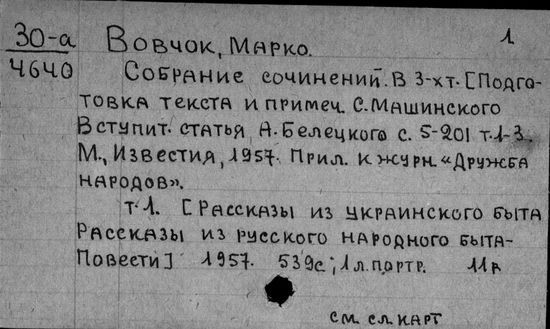 30-а Вовчок, Марко. 1
4640 Собрание сочинений. В 3-хт. [Подго-
товка текста и примеч. С. Машинского
Вступит. статья А. Белецкого с. 5-201 т.1-3.
М., Известия, 1957. Прил. к журн. «Дружба
народов».
т.1. [Рассказы из украинского быта
Рассказы из русского народного быта-
Повести] 1957. 539с; 1л. портр. 11р
см. сл. карт